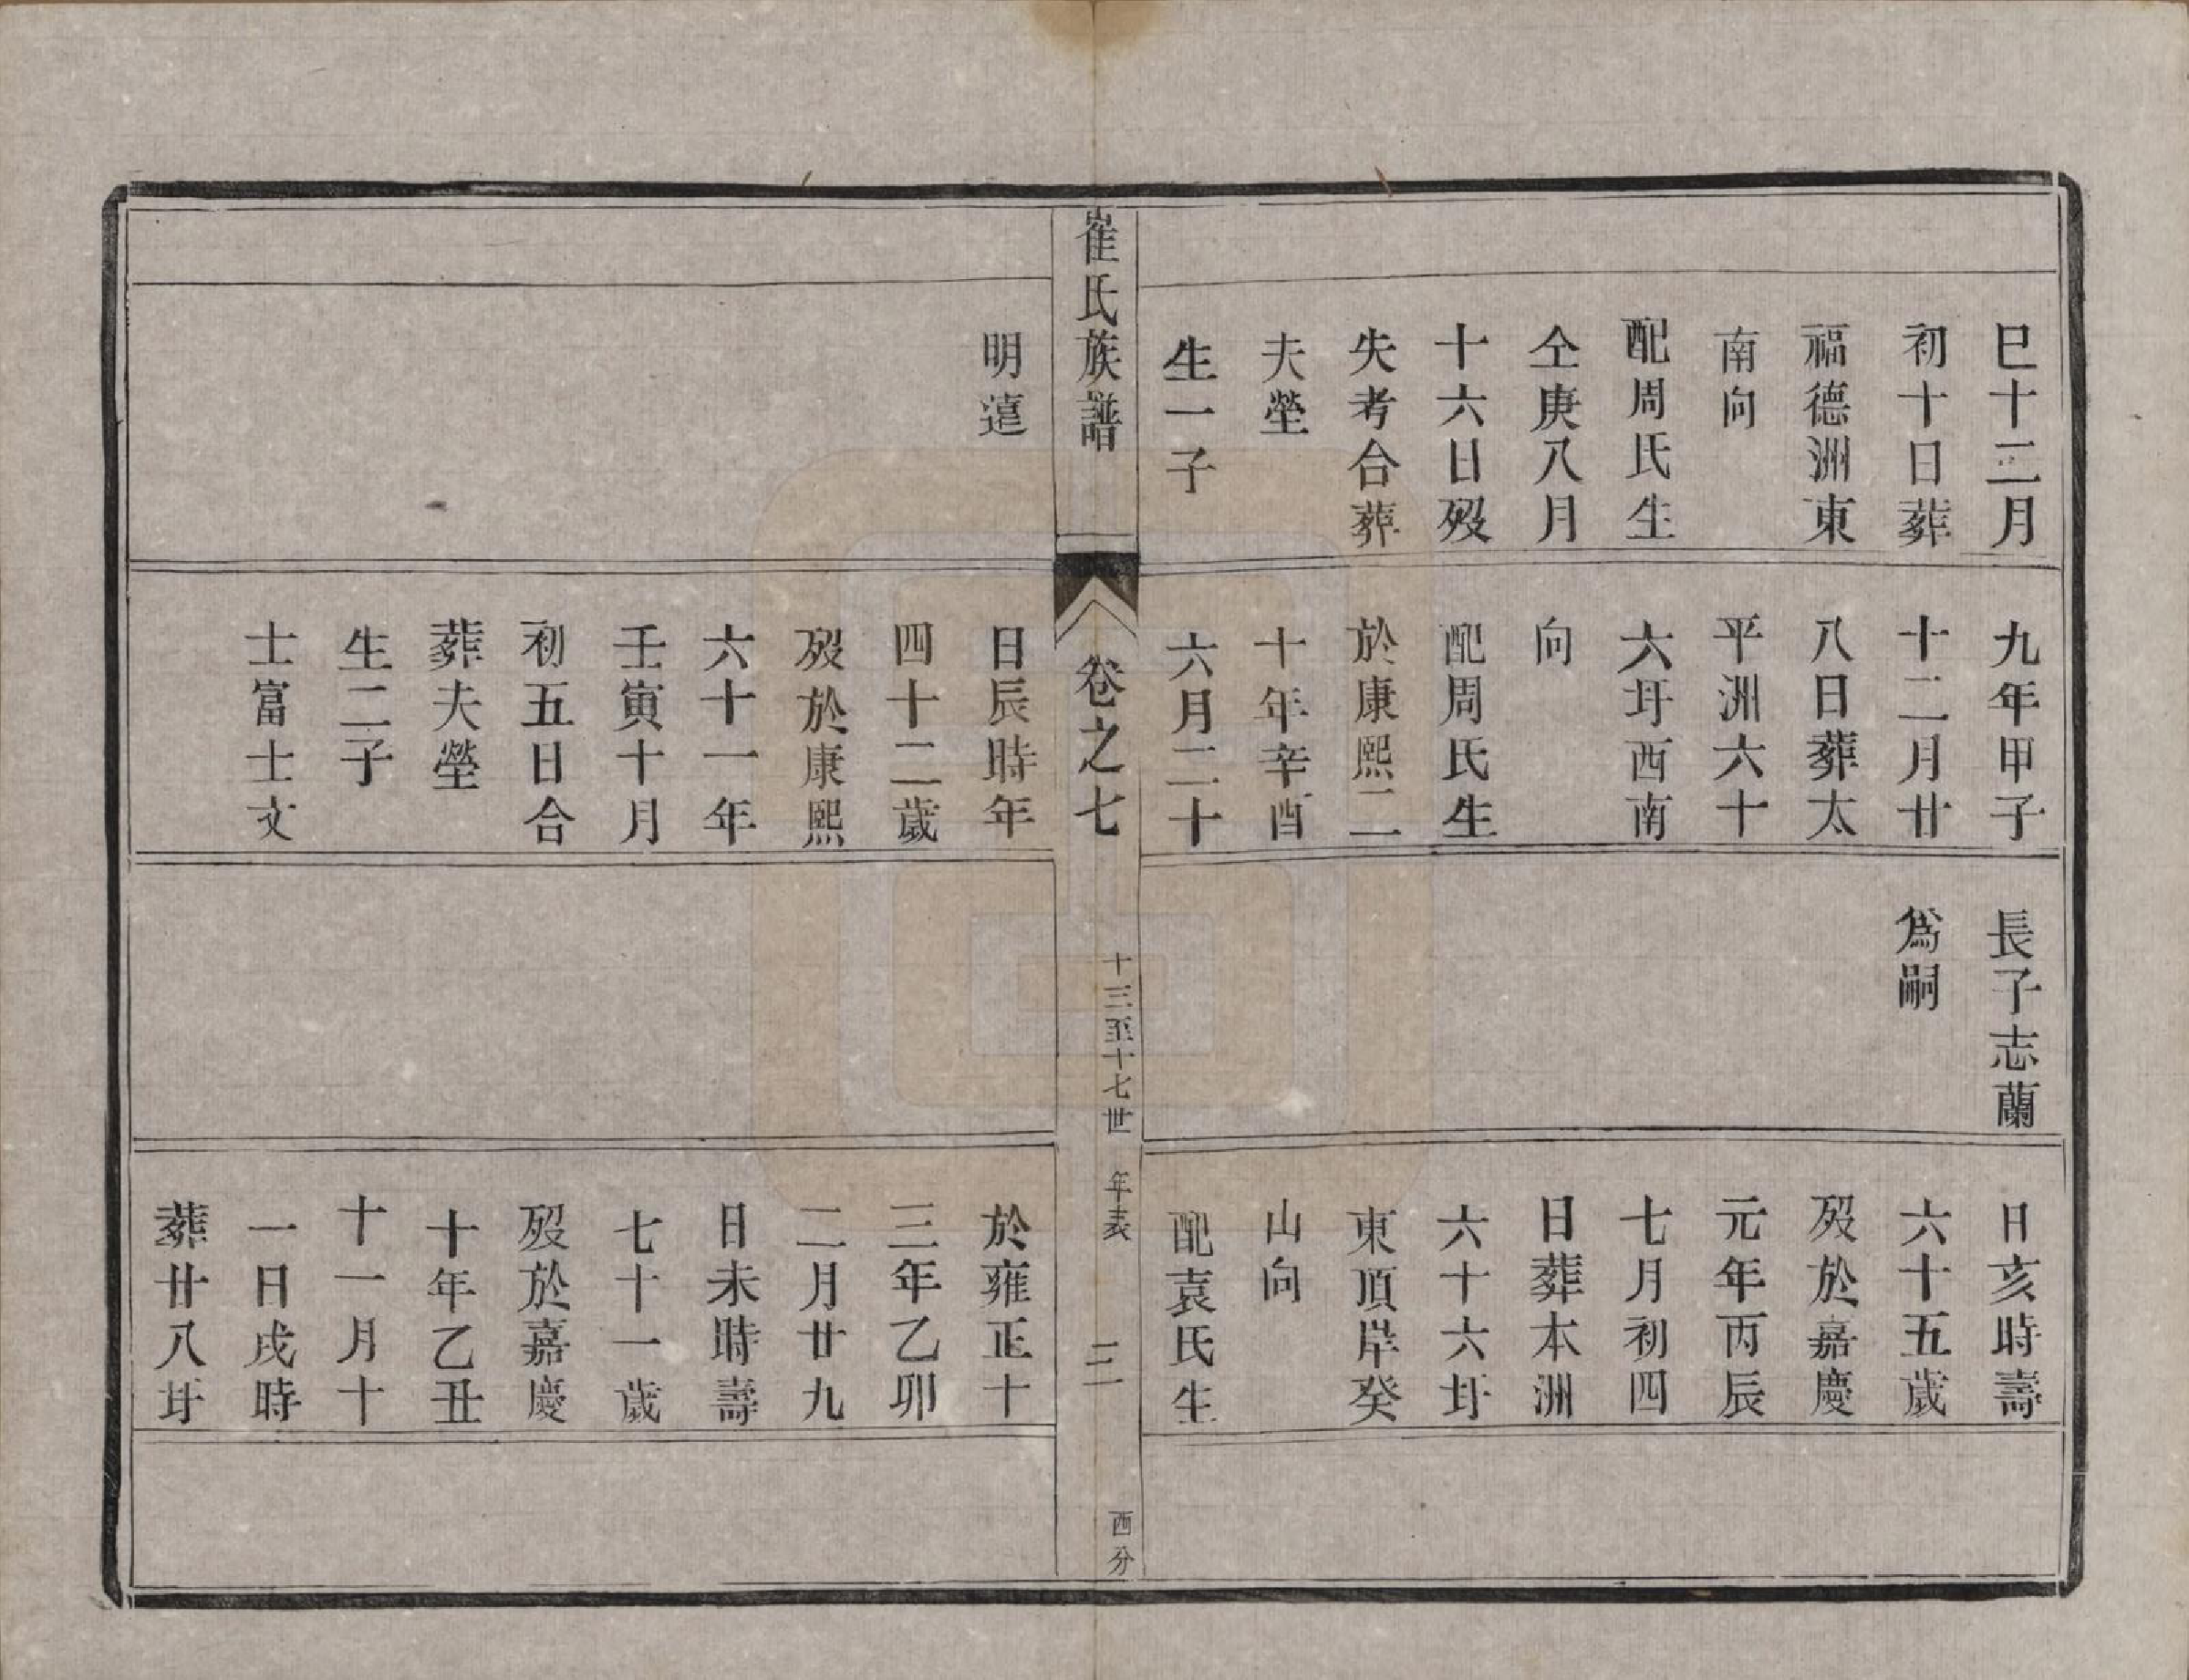 巳十二月
初十日葬
福德洲東
南向
配周氏生
仝庚八月
十六日歿
失考合葬
夫塋
生一子
九年甲子
十二月廿
八日葬太
平洲六十
六圩西南
向
配周氏生
於康熙二
十年辛酉
六月二十
長子志蘭
爲嗣
日亥時壽
六十五歲
歿於嘉慶
元年丙辰
七月初四
日葬本洲
六十六圩
東頂岸癸
山向
配袁氏生
崔氏族譜
卷之七
十三至十七世
年表
三
西分
明薳
日辰時年
四十二歲
歿於康熙
六十一年
壬寅十月
初五日合
葬夫塋
生二子
士富士文
於雍正十
三年乙卯
二月廿九
日未時壽
七十一歲
歿於嘉慶
十年乙丑
十一月十
一日戌時
葬廿八圩